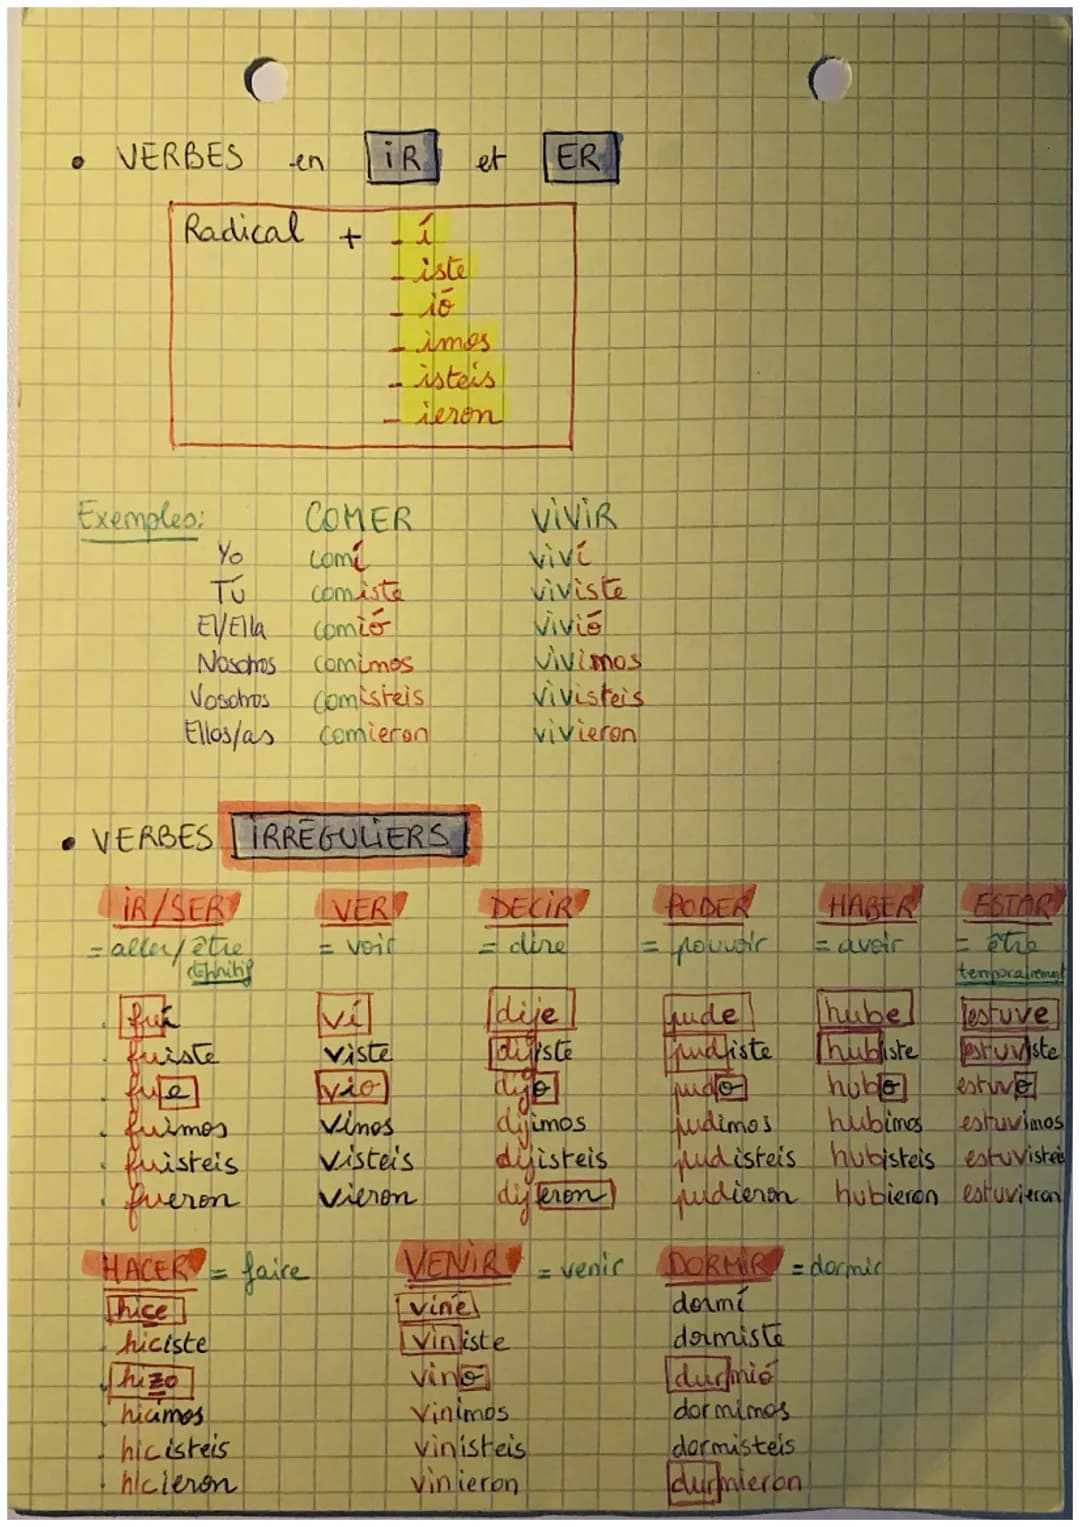 • VERBES en iR et ER
Radical + - í
- iste
- ió
- imos
- isteis
- ieron
Exemples: COMER ViViR
Yo comí viví
Tú comiste viviste
El/Ella comió vivió
Nosotros comimos vivimos
Vosotros comisteis vivisteis
Ellos/as comieron vivieron
• VERBES iRRÉGULiERS
iR/SER VER DECiR PODER HABER ESTAR
= aller/être définitif = voir = dire = pouvoir = avoir = être temporairement
fuí ví dije pude hube estuve
fuiste viste dijiste pudiste hubiste estuviste
fue vio dijo pudo hubo estuvo
fuimos vimos dijimos pudimos hubimos estuvimos
fuisteis visteis dijisteis pudisteis hubisteis estuvisteis
fueron vieron dijeron pudieron hubieron estuvieron
HACER = faire VENiR = venir DORMiR = dormir
hice viné dormí
hiciste viniste dormiste
hizo vino durmió
hicimos vinimos dormimos
hicisteis vinisteis dormisteis
hicieron vinieron durmieron